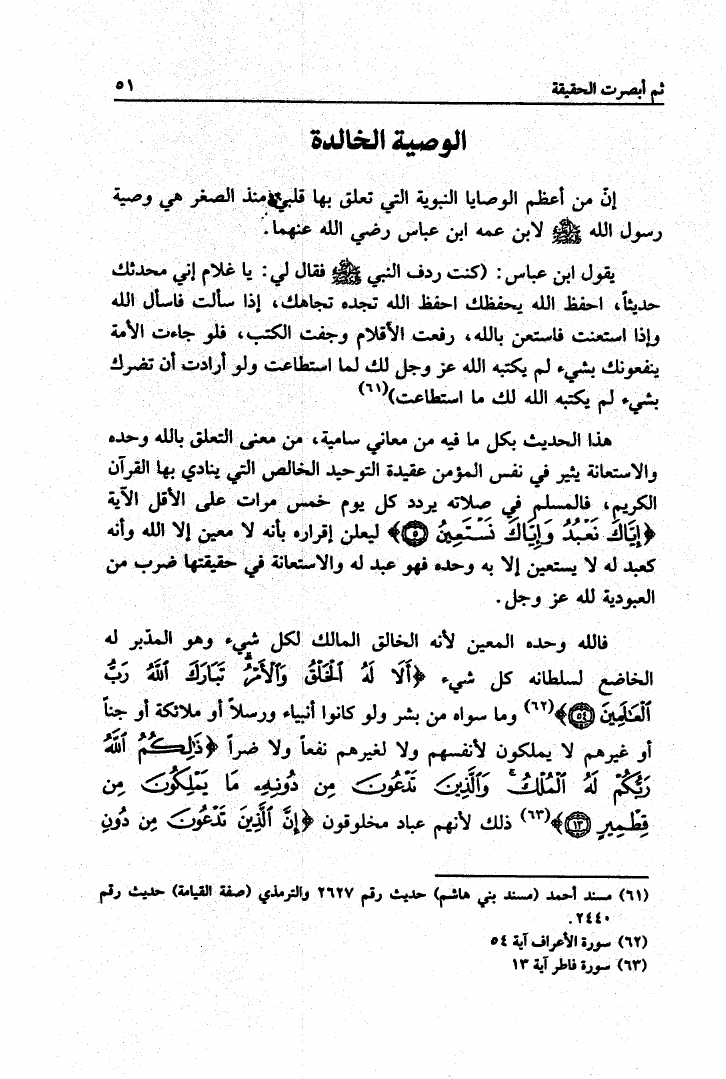 ثم أبصرت الحقيقة ٥١
الوصية الخالدة
إنّ من أعظم الوصايا النبوية التي تعلق بها قلبي منذ الصغر هي وصية
رسول الله ﷺ لابن عمه ابن عباس رضي الله عنهما.
يقول ابن عباس: (كنت ردف النبي ﷺ فقال لي: يا غلام إني محدثك
حديثاً، احفظ الله يحفظك احفظ الله تجده تجاهك، إذا سألت فاسأل الله
وإذا استعنت فاستعن بالله، رفعت الأقلام وجفت الكتب، فلو جاءت الأمة
ينفعونك بشيء لم يكتبه الله عز وجل لك لما استطاعت ولو أرادت أن تضرك
بشيء لم يكتبه الله لك ما استطاعت)(٦١)
هذا الحديث بكل ما فيه من معاني سامية، من معنى التعلق بالله وحده
والاستعانة يثير في نفس المؤمن عقيدة التوحيد الخالص التي ينادي بها القرآن
الكريم، فالمسلم في صلاته يردد كل يوم خمس مرات على الأقل الآية
﴿إِيَّاكَ نَعْبُدُ وَإِيَّاكَ نَسْتَعِينُ ۝٥﴾ ليعلن إقراره بأنه لا معين إلا الله وأنه
كعبد له لا يستعين إلا به وحده فهو عبد له والاستعانة في حقيقتها ضرب من
العبودية لله عز وجل.
فالله وحده المعين لأنه الخالق المالك لكل شيء وهو المدّبر له
الخاضع لسلطانه كل شيء ﴿أَلَا لَهُ ٱلْخَلْقُ وَٱلْأَمْرُ تَبَارَكَ ٱللَّهُ رَبُّ
ٱلْعَٰلَمِينَ ۝٥٤﴾(٦٢) وما سواه من بشر ولو كانوا أنبياء ورسلاً أو ملائكة أو جناً
أو غيرهم لا يملكون لأنفسهم ولا لغيرهم نفعاً ولا ضراً ﴿ذَٰلِكُمُ ٱللَّهُ
رَبُّكُمْ لَهُ ٱلْمُلْكُ ۚ وَٱلَّذِينَ تَدْعُونَ مِن دُونِهِۦ مَا يَمْلِكُونَ مِن
قِطْمِيرٍ ۝١٣﴾(٦٣) ذلك لأنهم عباد مخلوقون ﴿إِنَّ ٱلَّذِينَ تَدْعُونَ مِن دُونِ
(٦١) مسند أحمد (مسند بني هاشم) حديث رقم ٢٦٢٧ والترمذي (صفة القيامة) حديث رقم
٢٤٤٠.
(٦٢) سورة الأعراف آية ٥٤
(٦٣) سورة فاطر آية ١٣